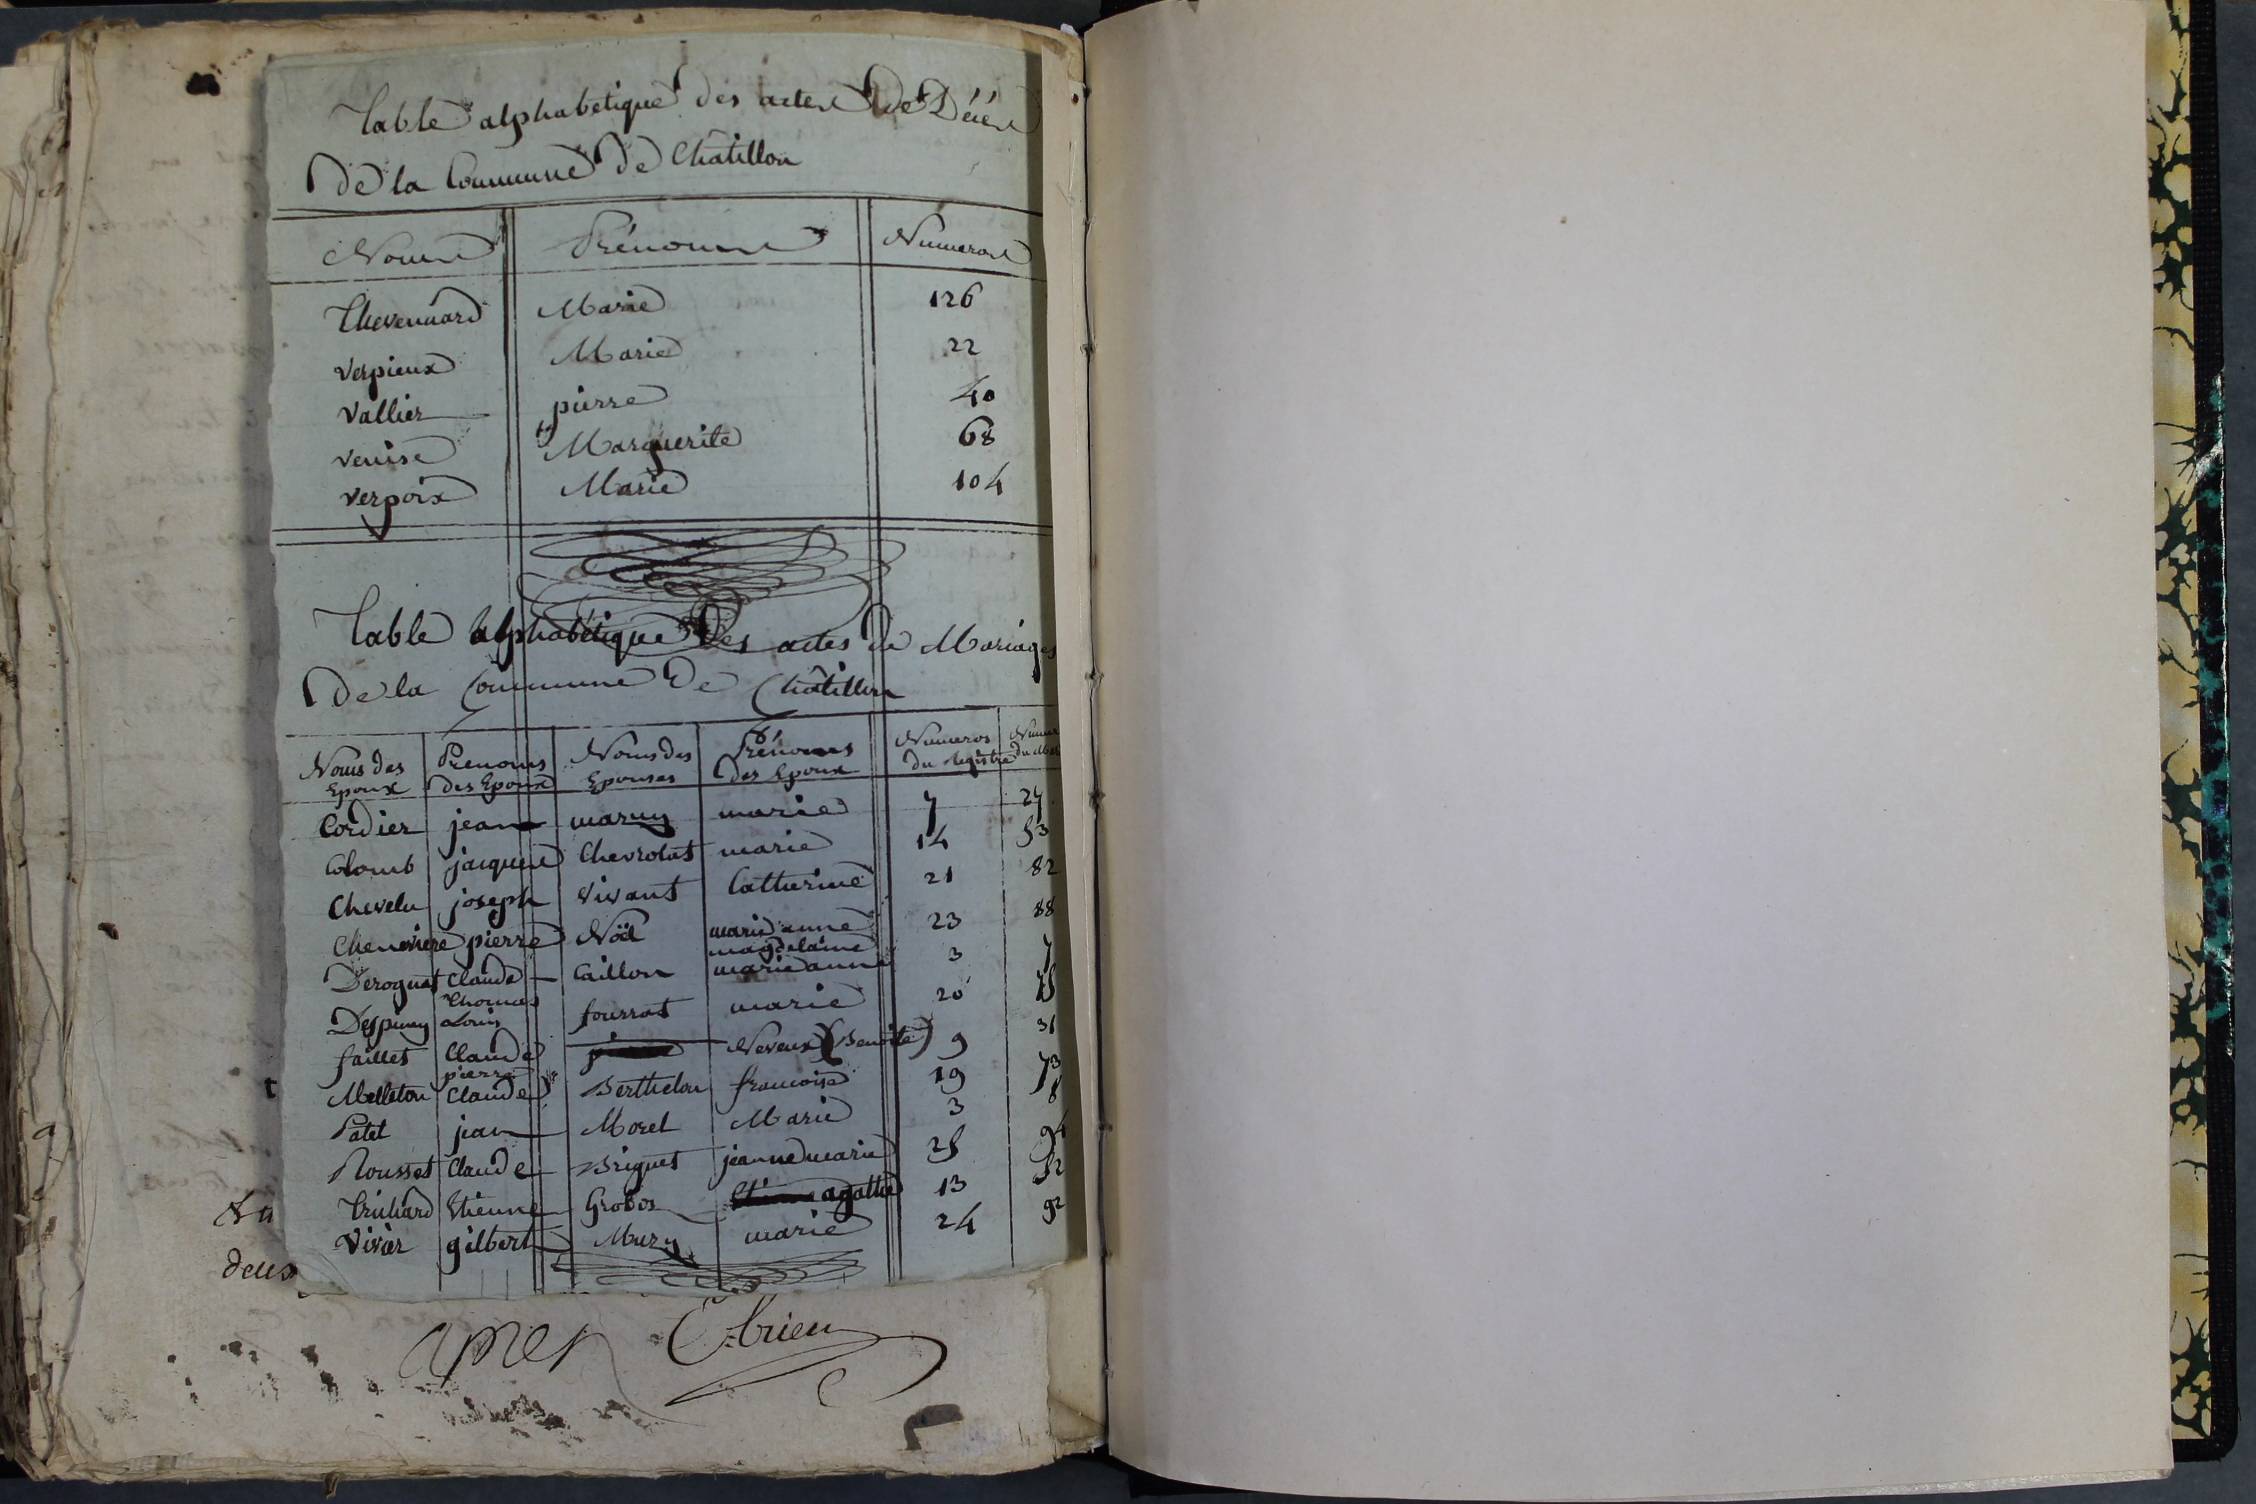 Table alphabetique des actes de Décès
de la Commune de Châtillon
Noms Prénoms Numeros
Thevenard Marie 126
Verpieux Marie 22
Vallier pierre 40
Venise Marguerite 68
Verpoix Marie 104
Table alphabétique des actes de Mariages
de la Commune de Châtillon
Noms des Epoux Prenoms des Epoux Noms des Epouses Prénoms des Epoux Numeros du Registre
Cordier jean marie 7 27
Colomb jacques Chevrolat marie 14 53
Chevelu joseph Vivant Catherine 21 82
Cheneviere pierre Noël marie anne magdelaine 23 88
Deroguat Claude Caillon marie anne 3 7
Despiney Thomas Louis fourrat marie 20
faillet Claude pierre Neveux (Benoite) 9 31
Melleton Claude Berthelon francoise 19 73
Patet jean Morel Marie 3 8
Rousset Claude Briguet jeanne marie 25 94
Trichard Etienne Grobos agathe 13 52
Vivier gilbert Mury marie 24 92
deux